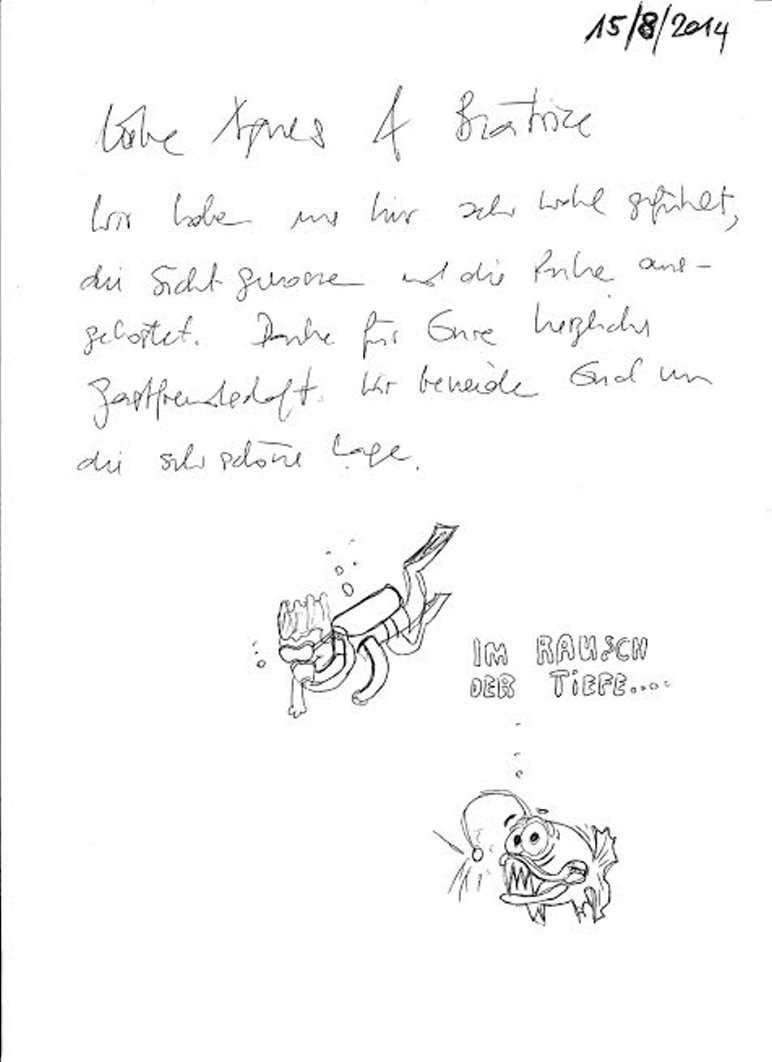 15/8/2014
Liebe Agnes & Beatrice
Wir haben uns hier sehr wohl gefühlt,
die Sicht genossen und die Ruhe aus-
gekostet. Danke für Eure herzliche
Gastfreundschaft. Wir beneiden Euch um
die sehr schöne Lage.
IM RAUSCH
DER TIEFE....